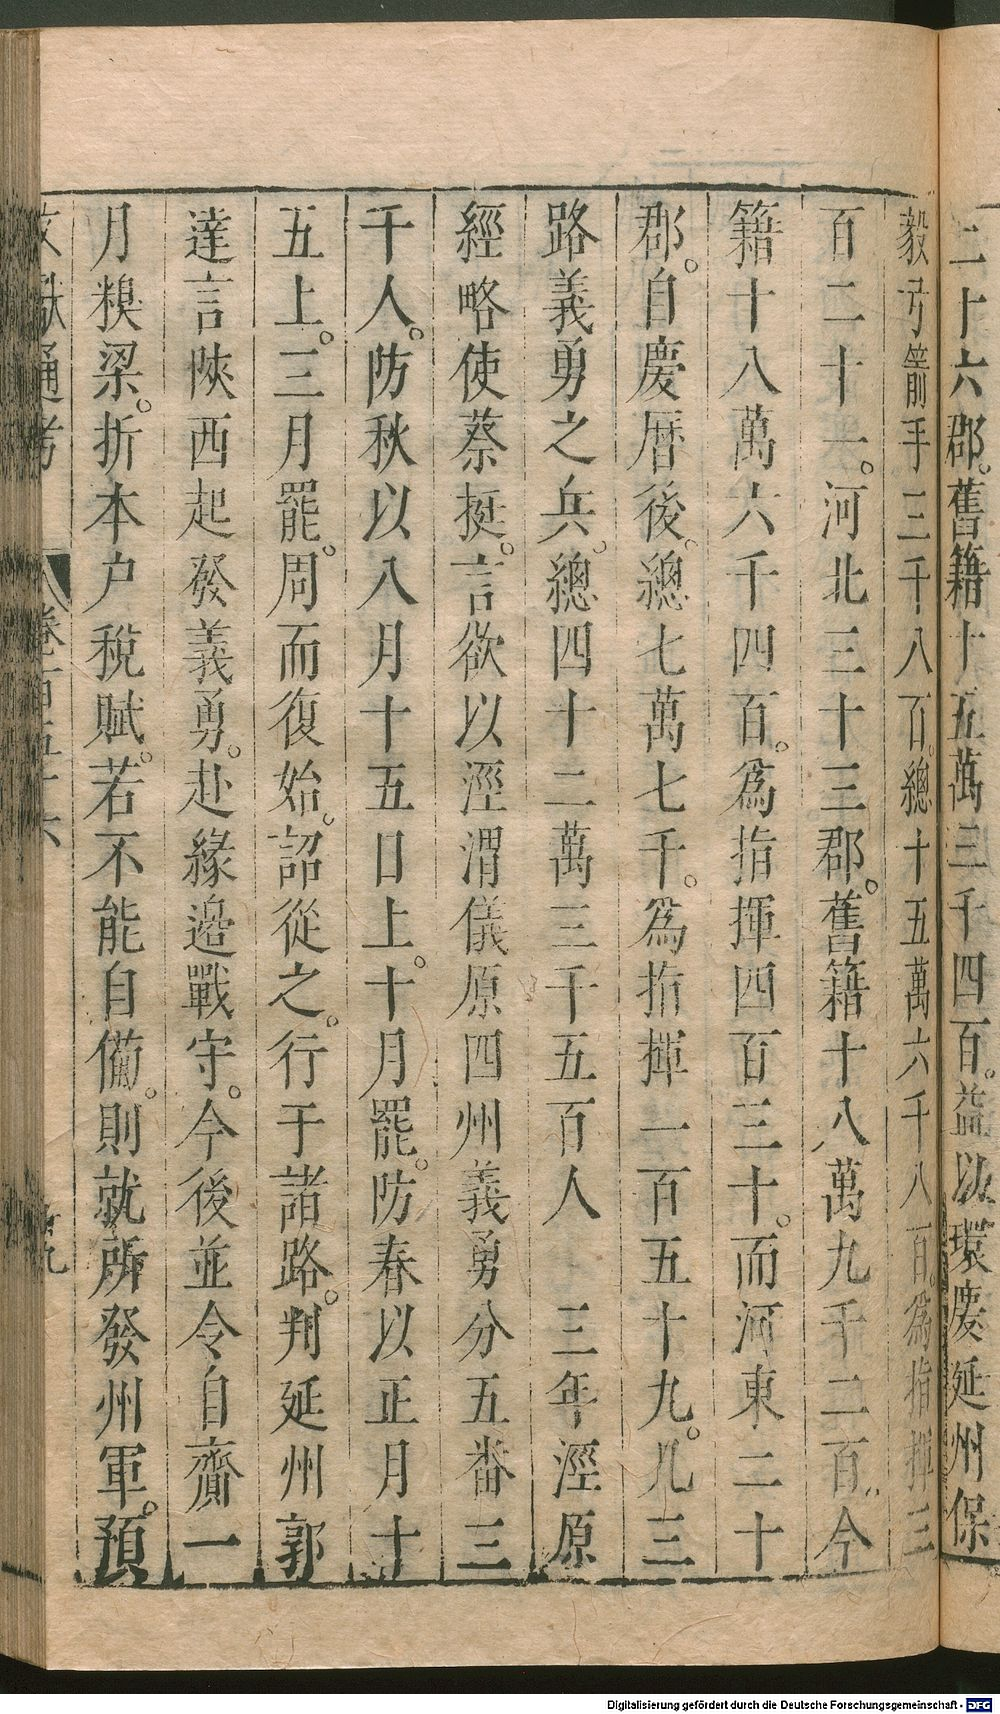 二十六郡。舊籍十五萬三千四百。益以環慶延州保
毅弓箭手三千八百。總十五萬六千八百。爲指揮三
百二十一。河北三十三郡。舊籍十八萬九千二百。今
籍十八萬六千四百。爲指揮四百三十。而河東二十
郡。自慶曆後。總七萬七千。爲指揮一百五十九。凡三
路義勇之兵。總四十二萬三千五百人　三年涇原
經略使蔡挺。言欲以涇渭儀原四州義勇分五番三
千人。防秋以八月十五日上。十月罷。防春以正月十
五上。三月罷。周而復始。詔從之。行于諸路。判延州郭
達言陝西起發義勇。赴緣邊戰守。今後並令自齎一
月糗粱。折本户稅賦。若不能自備。則就所發州軍。預
文獻通考　卷百五十六　九
Digitalisierung gefördert durch die Deutsche Forschungsgemeinschaft - DFG